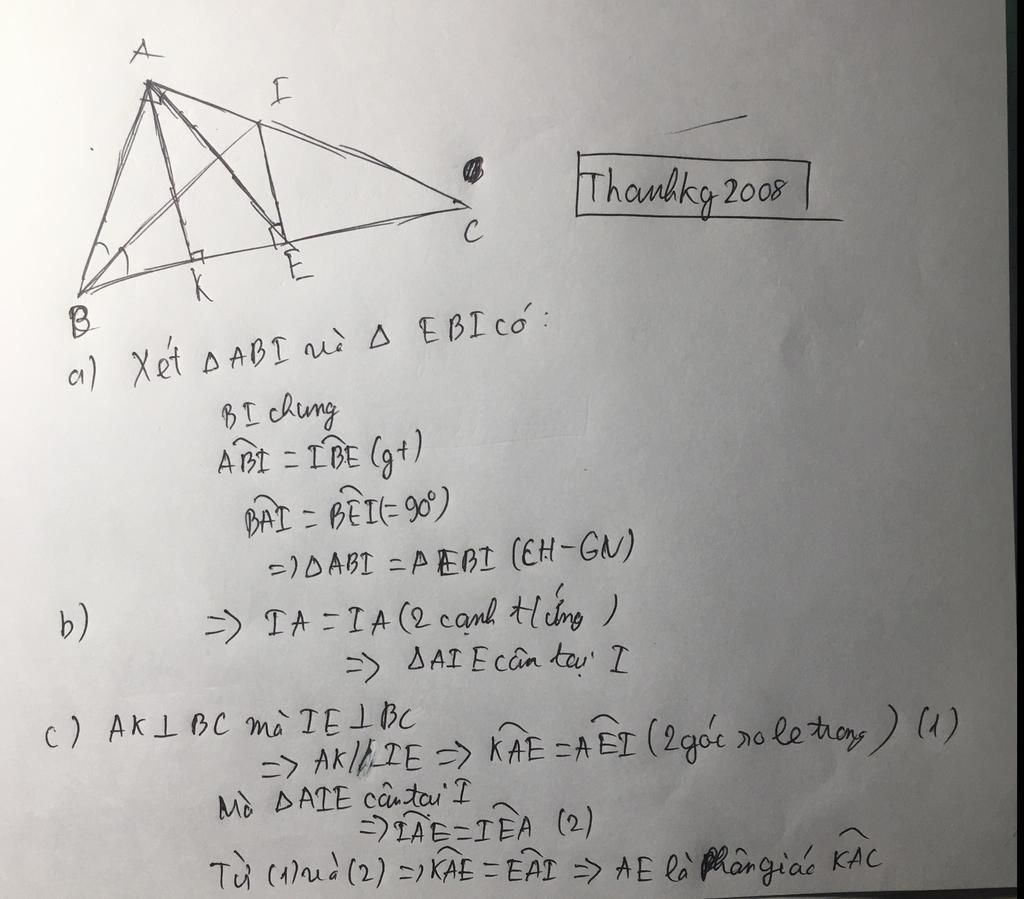 A
I
C
B
K
E
Thanhkg 2008
a) Xét Δ ABI và Δ EBI có:
BI chung
ABI = IBE (gt)
BAI = BEI (= 90°)
=> Δ ABI = Δ EBI (CH-GN)
b) => IA = IA (2 cạnh t/ứng)
=> ΔAIE cân tại I
c) AK ⊥ BC mà IE ⊥ BC
=> AK // IE => KAE = AEI (2 góc so le trong) (1)
Mà ΔAIE cân tại I
=> IAE = IEA (2)
Từ (1) và (2) => KAE = EAI => AE là phân giác KAC